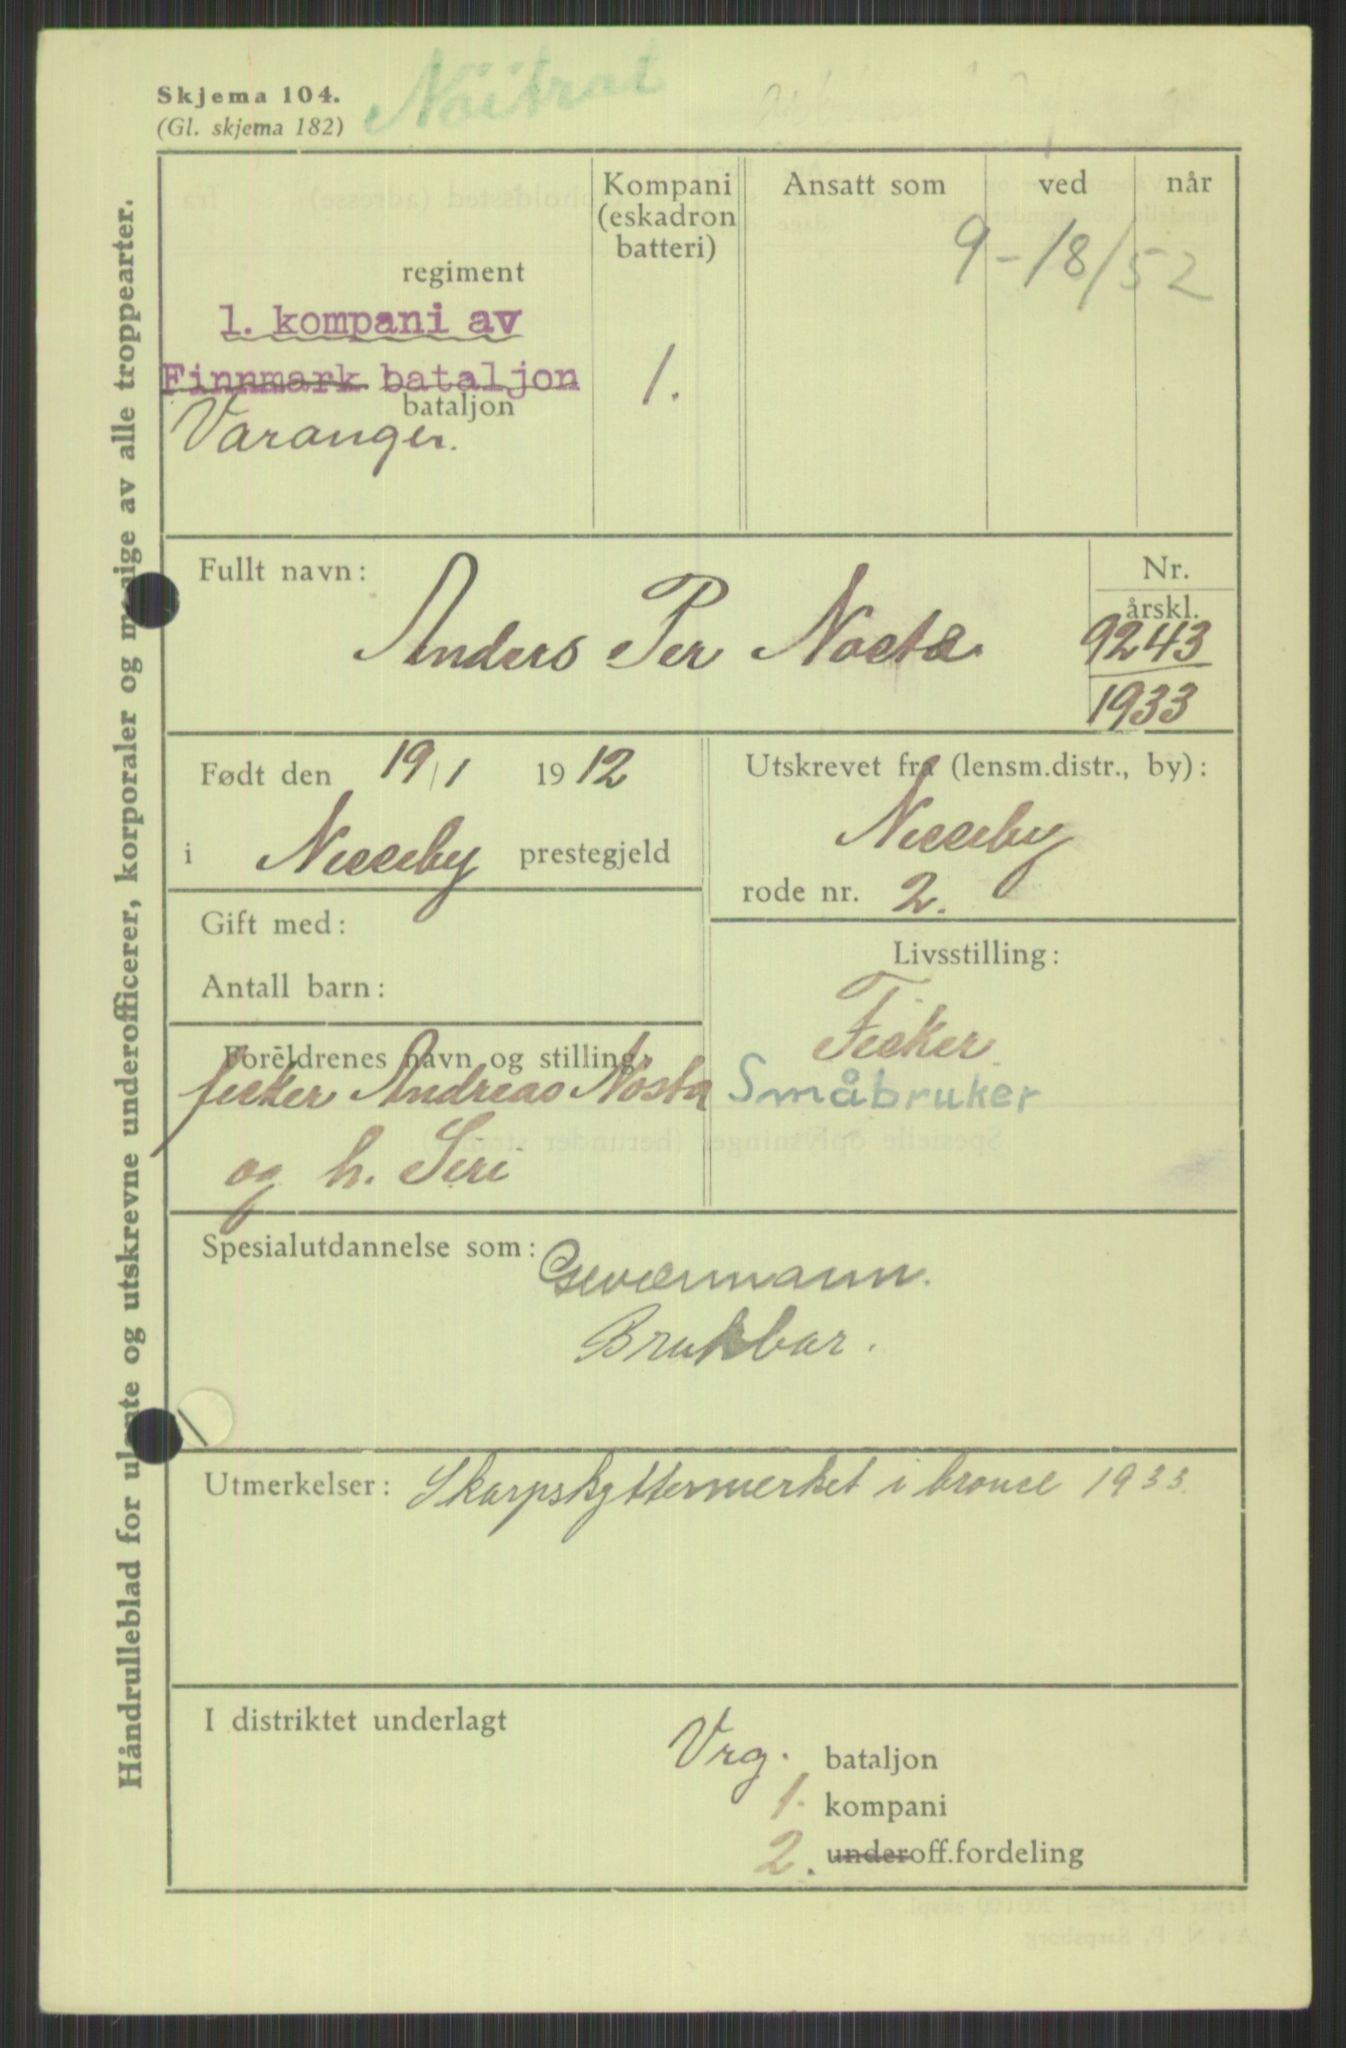 Skjema 104.
(Gl. skjema 182)
Håndrulleblad for ulønte og utskrevne underofficerer, korporaler og menige av alle troppearter.
regiment
1. kompani av
Finnmark bataljon
bataljon
Varanger.
Kompani
(eskadron
batteri)
1.
Ansatt som
ved
når
9-/8/52
Fullt navn:
Anders Per Noste
Nr.
årskl.
9243
1933
Født den 19/1 1912
i Nesseby prestegjeld
Utskrevet fra (lensm.distr., by):
Nesseby
rode nr. 2.
Gift med:
Antall barn:
Foreldrenes navn og stilling:
fisker Andreas Noste
og h. Siri
Livsstilling:
Fisker
Småbruker
Spesialutdannelse som: Geværmann.
Brukbar.
Utmerkelser: Skarpskyttermerket i bronse 1933.
I distriktet underlagt
Vrg. bataljon
1. kompani
2. underoff.fordeling